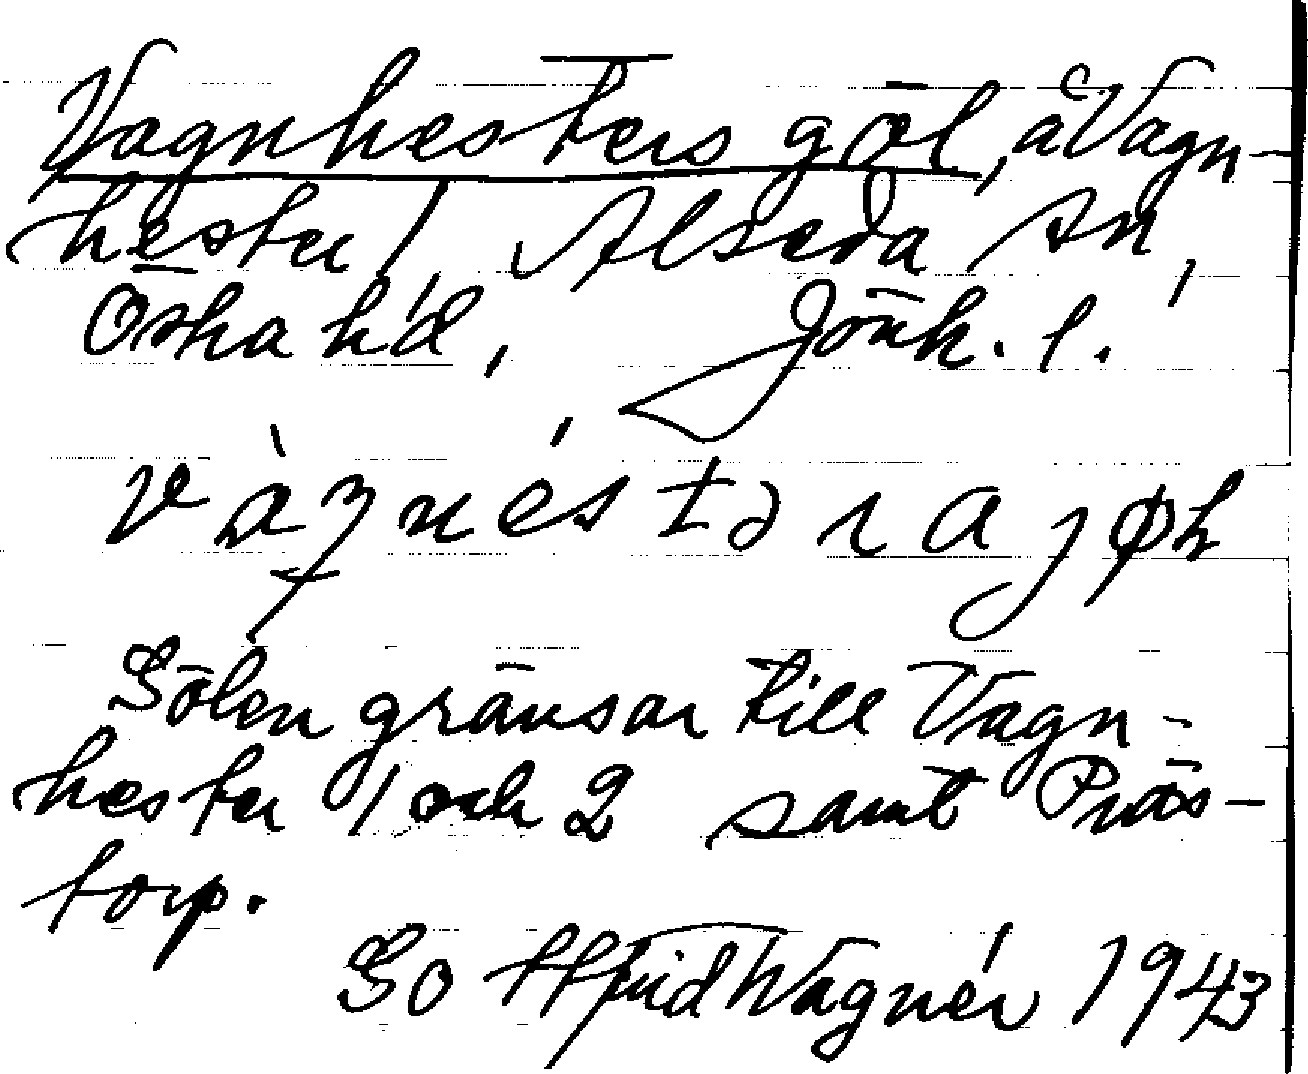 Vagnhesters göl, å Vagn-
hester 1, Alseda sn,
Östra hd, Jönk. l.
vàgnéstəra jøl
Gölen gränsar till Vagn-
hester 1 och 2 samt Präs-
torp.
Gottfrid Wagnér 1943